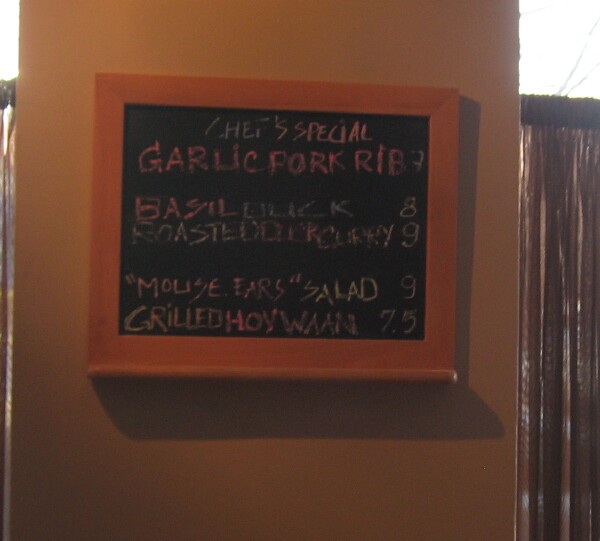 CHEF'S SPECIAL
GARLIC PORK RIB 7
BASIL DUCK 8
ROASTED DUCK CURRY 9
"MOUSE EARS" SALAD 9
GRILLED HOY WAAN 7.5